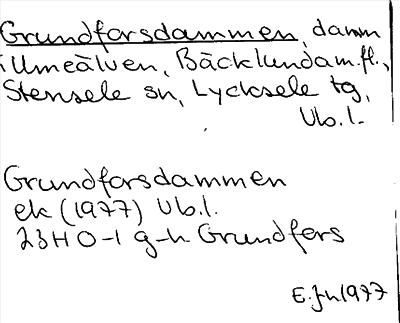 Grundforsdammen, damm
i Umeälven, Bäcklundam.fl.,
Stensele sn, Lycksele tg,
Vb.l.
Grundforsdammen
ek (1977) Vb.l.
23H 0-1 g-h Grundfors
E.Jn 1977